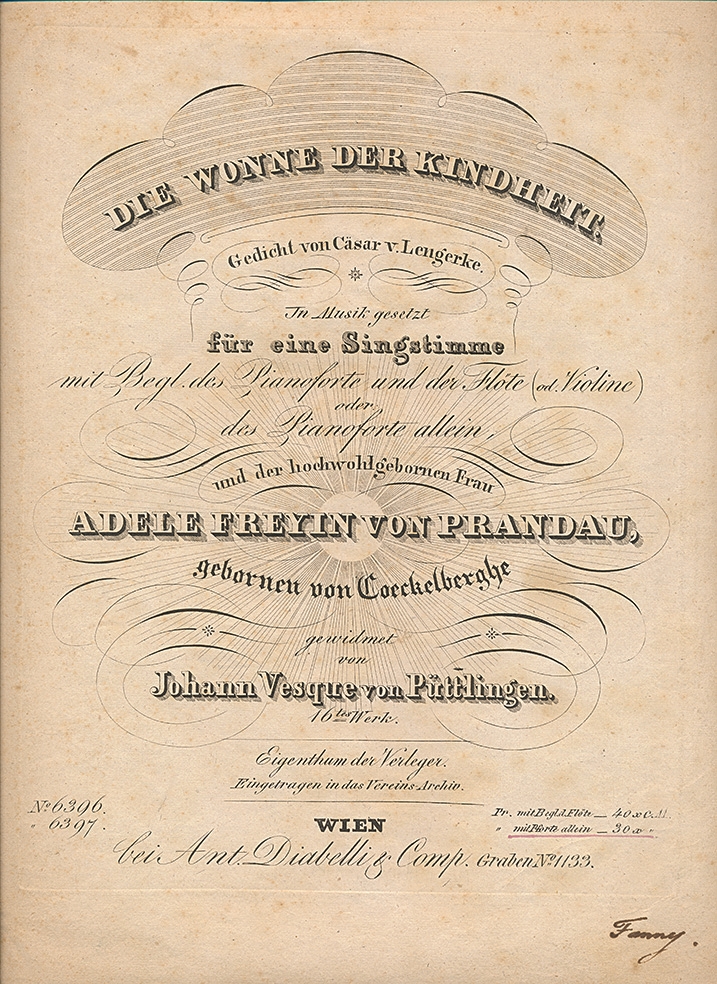 DIE WONNE DER KINDHEIT.
Gedicht von Cäsar v. Lengerke.
In Musik gesetzt
für eine Singstimme
mit Begl. des Pianoforte und der Flöte (od. Violine)
oder
des Pianoforte allein,
und der hochwohlgebornen Frau
ADELE FREYIN VON PRANDAU,
gebornen von Coeckelberghe
gewidmet
von
Johann Vesque von Püttlingen.
16tes Werk.
Eigenthum der Verleger.
Eingetragen in das Vereins-Archiv.
No. 6396.
" 6397.
Pr. mit Begl. d. Flöte — 40 x C.M.
" mit Pforte allein — 30 x "
WIEN
bei Ant. Diabelli & Comp. Graben No. 1133.
Fanny.